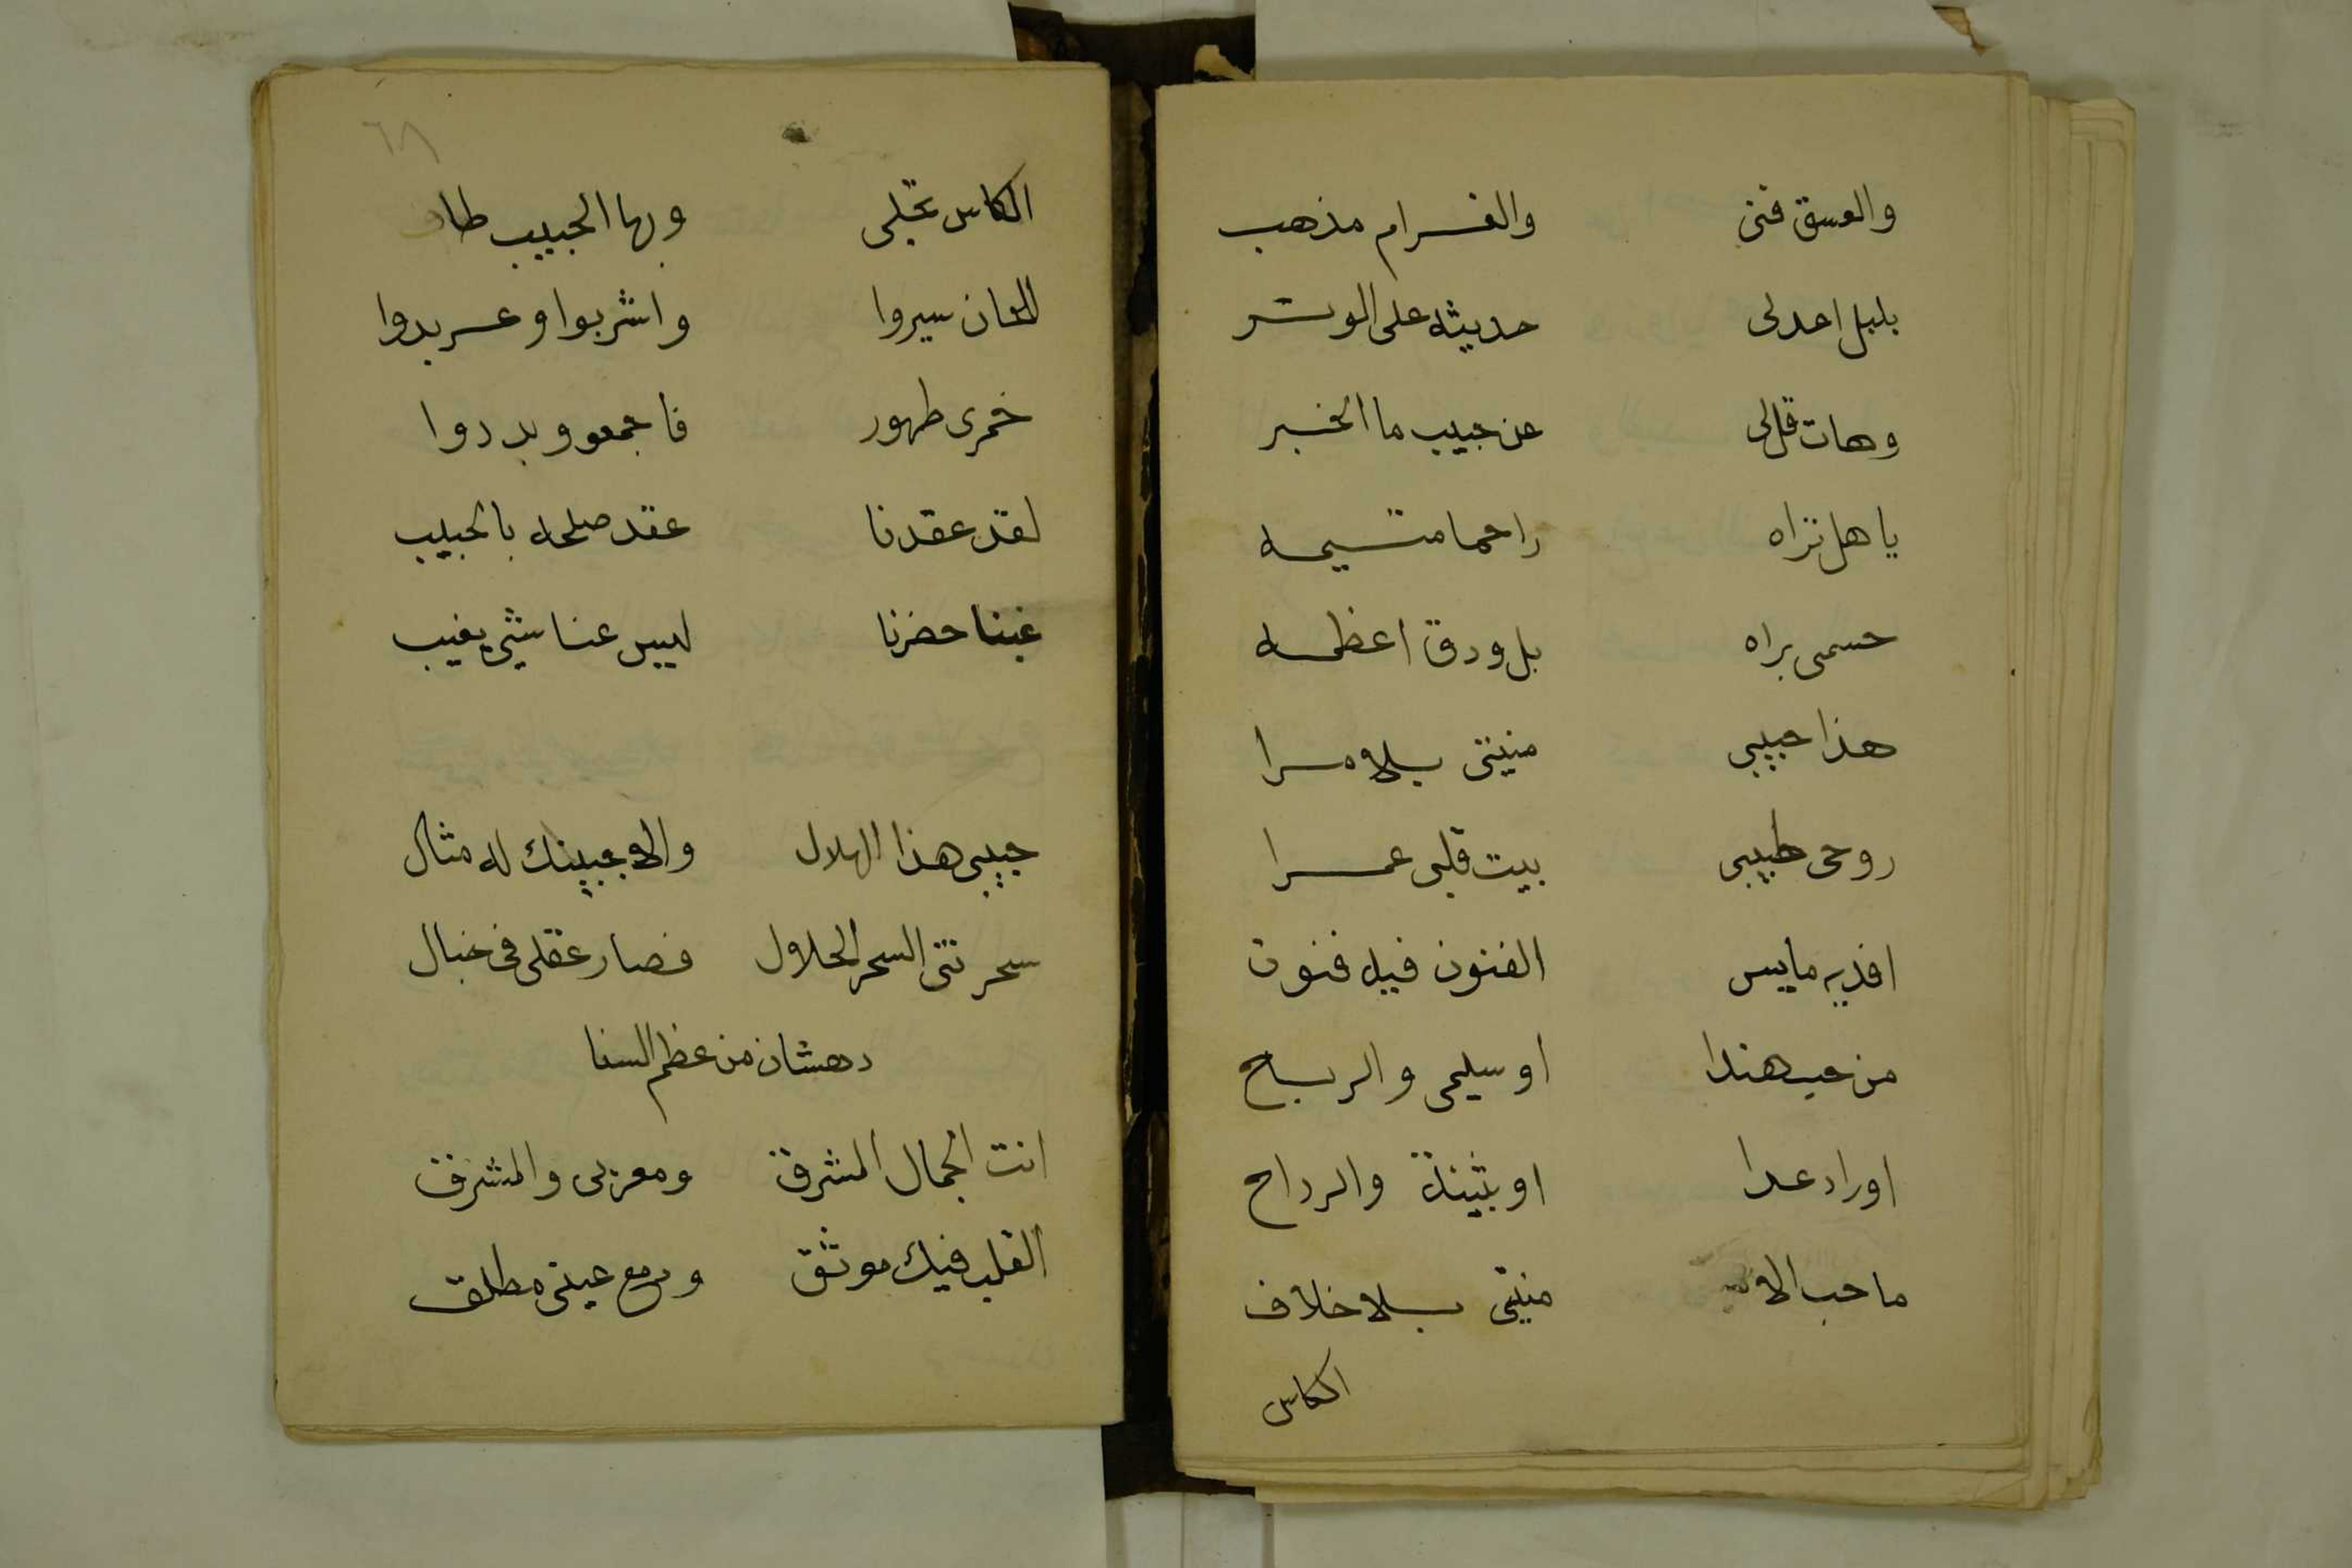 والعسق فنى والغرام مذهب
بلبل اعدلى حديثه على الوتر
وهات قل لى عن حبيب ما الخبر
يا هل تراه راحما متيمه
حسمى براه بل ودق اعظمه
هذا حبيبى منيتى بلا مرا
روحى طبيبى بيت قلبى عمرا
افديه مايس الفنون فيه فنون
من حب هندا او سليمى والرباح
اوراد عدا او بثينة والرداح
ما حب الا منيتى بلا خلاف
الكاس
٦٨
الكاس تجلى وبها الحبيب طاف
للحان سيروا واشربوا وعربدوا
خمرى طهور فاجمعو وبددوا
لقد عقدنا عقد صلحه بالحبيب
غبنا حضرنا ليس عنا شيئ يغيب
حبيبى هذا الهلال والا جبينك له مثال
سحرتنى السحر الحلال فصار عقلى فى خبال
دهشان من عظم السنا
انت الجمال المشرق ومغربى والمشرق
القلب فيك موثق ودمع عينى مطلق